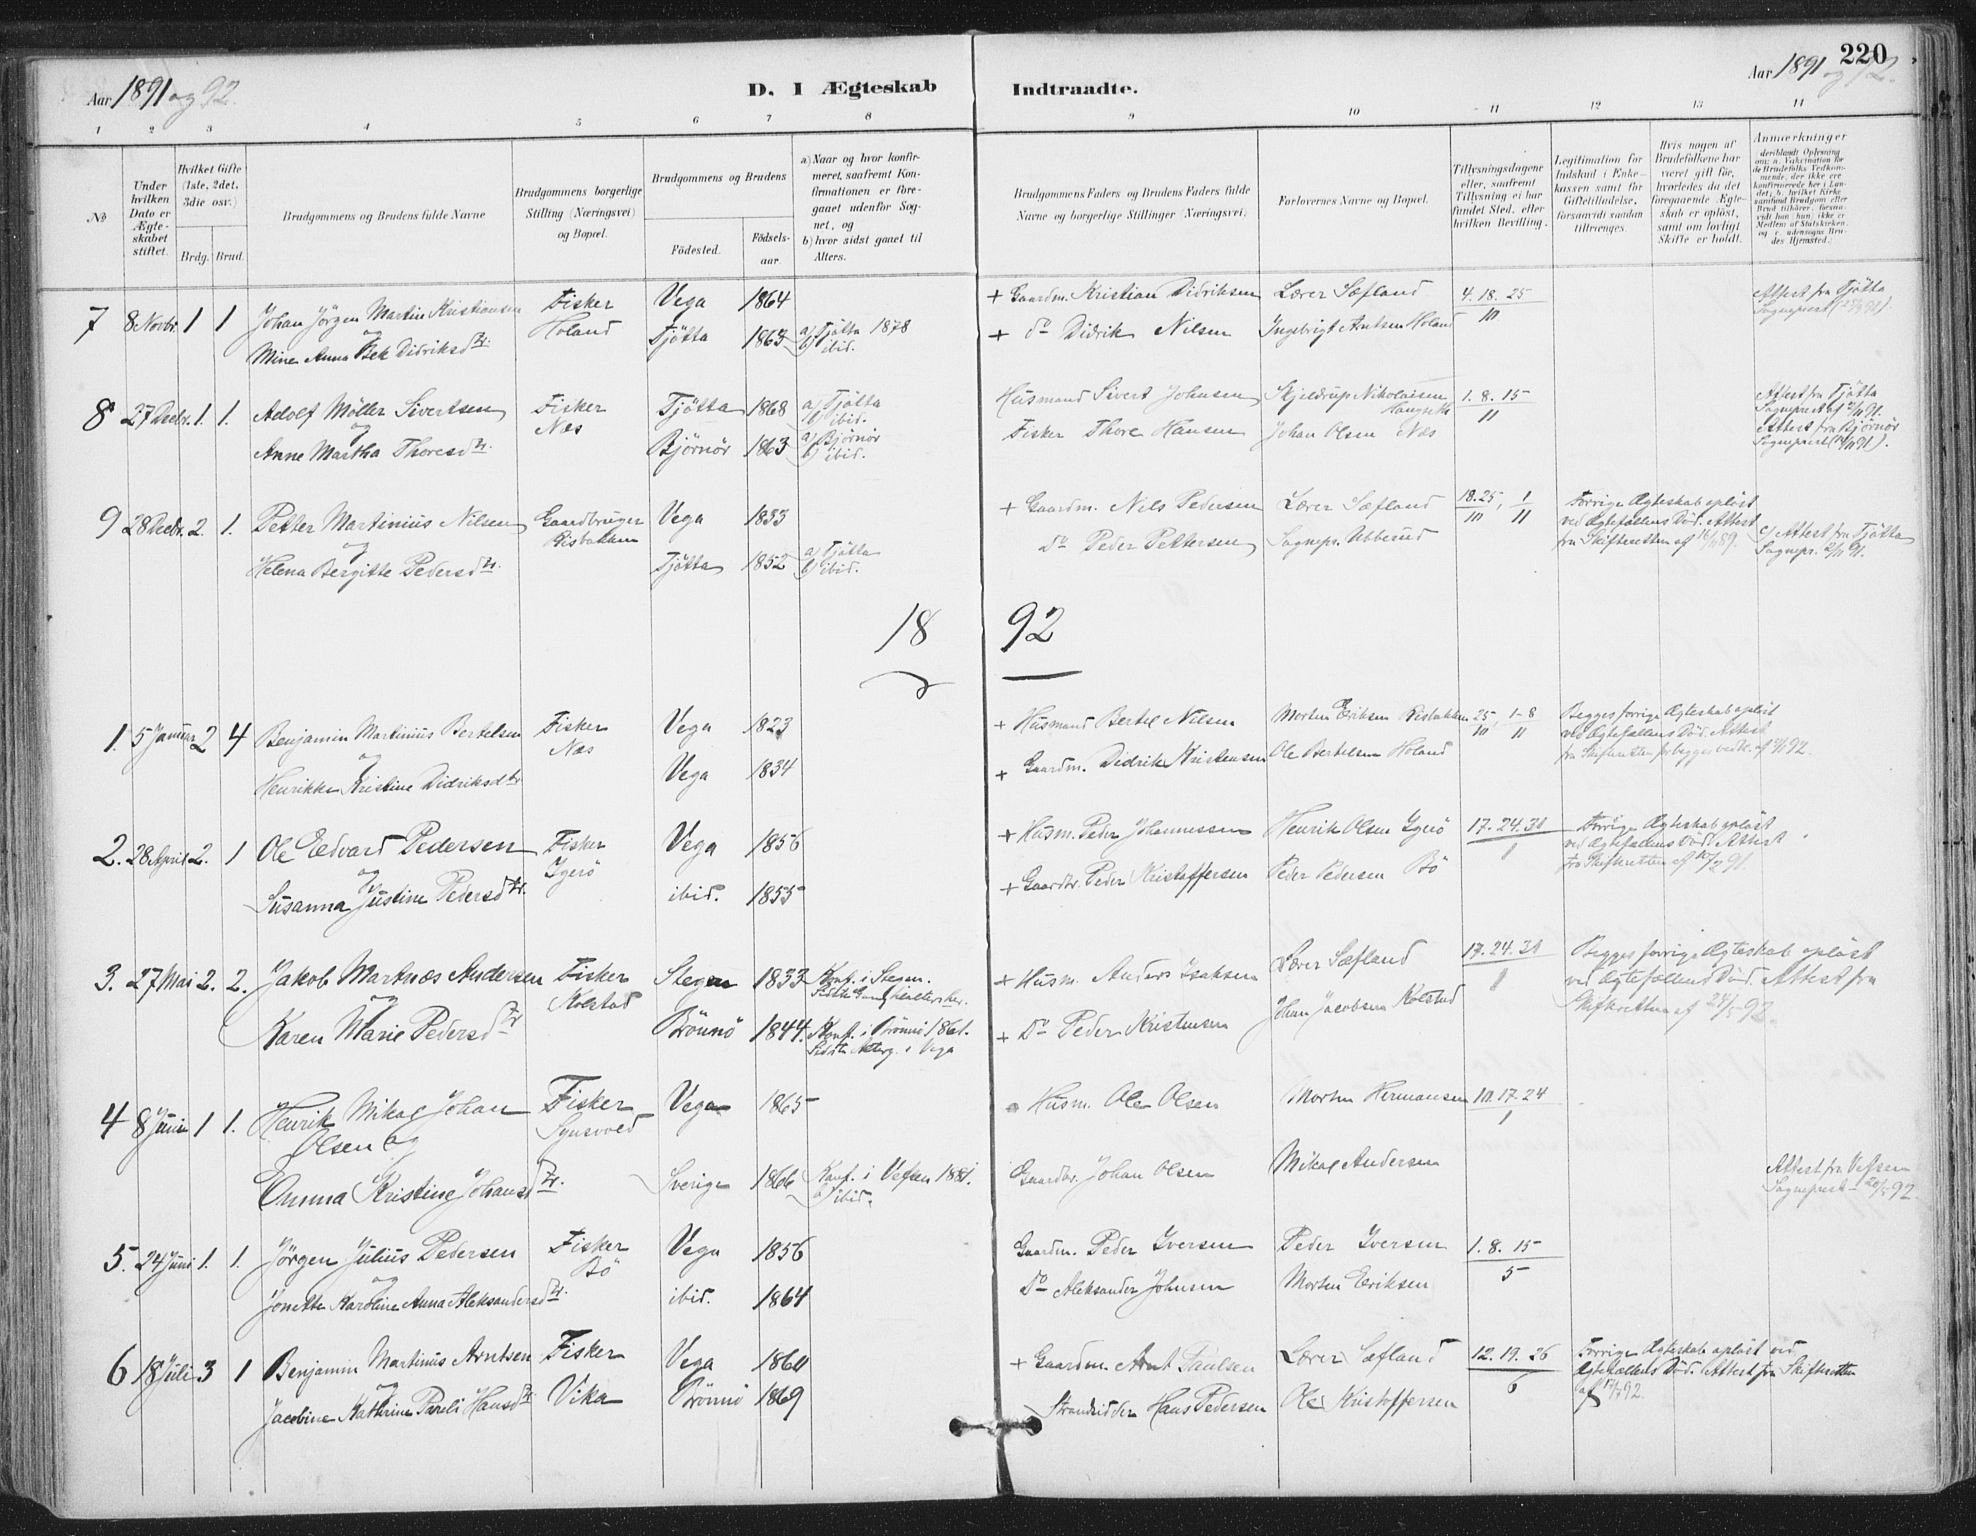 Aar 1891 og 92.
D. I Ægteskab
Indtraadte.
Aar 1891 og 92.
220
1 2 3 4 5 6 7 8 9 10 11 12 13 14
No
Under hvilken Dato er Ægteskabet stiftet.
Hvilket Gifte (1ste, 2det, 3die osv.)
Brdg. Brud.
Brudgommens og Brudens fulde Navne
Brudgommens borgerlige Stilling (Næringsvei) og Bopæl.
Brudgommens og Brudens
Fødested.
Fødselsaar.
a) Naar og hvor konfirmeret, saafremt Konfirmationen er foregaaet udenfor Sognet, og
b) hvor sidst gaaet til Alters.
Brudgommens Faders og Brudens Faders fulde Navne og borgerlige Stillinger (Næringsvei).
Forlovernes Navne og Bopæl.
Tillysningsdagene eller, saafremt Tillysning ei har fundet Sted, efter hvilken Bevilling.
Legitimation for Indskud i Enkekassen samt for Giftetilladelse, forsaavidt saadan tiltrænges.
Hvis nogen af Brudefolkene har været gift før, hvorledes da det foregaaende Ægteskab er opløst, samt om lovligt Skifte er holdt.
Anmerkninger
7 8 Novbr. 1 1 Johan Jörgen Martin Kristiansen Fisker Vega 1864 + Gaardm. Kristian Didriksen Lærer Sæfland 4. 18. 25 Attest fra Tjötta
og Holand 10 Sogneprest
Mine Anna Bek Didriksdtr. Tjötta 1863 a) Tjötta 1878 b) ibid. + do Didrik Nilsen Ingebrigt Antsen Holand
8 27 Decbr. 1. 1. Adolf Möller Sivertsen Fisker Tjötta 1868 a) Tjötta b) ibid. Husmand Sivert Johnsen Skjeldrup Nikolaisen 1. 8. 15 Attest fra Tjötta
og Næs 11
Anne Martha Thoresdtr. Björnör 1863 a) Björnör b) ibid. Fisker Thore Hansen Johan Olsen Næs Attest fra Bjørnør
9 28 Decbr. 2. 1. Petter Martinius Nilsen Gaardbruger Vega 1833 + Gaardm. Nils Pedersen Lærer Sæfland 18. 25 / 10, 1 / 11 Forrige Ægteskab opløst
og Risbakken ved Ægtefællens Död. Attest
Helena Bergitte Pedersdtr. Tjötta 1852 a) Tjötta b) ibid. Do Peder Pettersen Sognepr. Ubberud fra Skifteretten af c) Attest fra Tjötta
18 92
1. 5 Januar 2 4 Benjamin Martinius Bertelsen Fisker Vega 1823 + Husmand Bertel Nilsen Morten Eriksen Risbakken 25 / 10, 1-8 / 11 Begges forrige Ægteskab opløst
og Næs ved Ægtefællens Död. Attest
Henrikke Kristine Didriksdtr. Vega 1834 + Gaardm. Didrik Kristensen Ole Bertelsen Holand
2. 28 April 2. 1 Ole Edvard Pedersen Fisker Vega 1856 + Husm. Peder Johannessen Henrik Olsen Ygerö 17. 24. 31 Forrige Ægteskab opløst
og Ygerö 1 ved Ægtefællens Död. Attest
Susanna Justine Pedersdtr. ibid. 1855 + Gaardbr. Peder Kristoffersen Peder Pedersen Bö fra Skifteretten af
3. 27 Mai 2. 2. Jakob Martnæs Andersen Fisker Stegen 1833 Konf. i Stegen. + Husm. Anders Isaksen Lærer Sæfland 17. 24. 31 Begges forrige Ægteskab opløst
og Kolstad 1 ved Ægtefællens Död. Attest fra
Karen Marie Pedersdtr. Brönnö 1844. Konf. i Brönnö 1861. + Do Peder Kristensen Johan Jacobsen Kolstad Skifteretten af
4 8 Juni 1 1. Henrik Mikal Johan Fisker Vega 1865 Husm. Ole Olsen Morten Hermansen 10. 17. 24
Olsen og 1
Emma Kristine Johansdtr. Sverige 1866 Konf. i Vefsen 1881. b) ibid. Gaardbr. Johan Olsen Mikal Andersen Attest fra Vefsen
5. 24 Juni 1. 1. Jörgen Julius Pedersen Fisker Vega 1856 Gaardm. Peder Iversen Peder Iversen 1. 8. 15
og Bö 5
Jonette Karoline Anna Aleksandersdtr. ibid. 1864 Do Aleksander Johnsen Morten Eriksen
6 18 Juli 3 1 Benjamin Martinus Arntsen Fisker Vega 1860 + Gaardm. Arnt Paulsen Lærer Sæfland 12. 19. 26 Forrige Ægteskab opløst ved
og 6 Ægtefællens Död. Attest fra Skifteretten
Jacobine Kathrine Pareli Hansdtr. Vika Brönnö 1869 Strandsidder Hans Pedersen Ole Kristoffersen